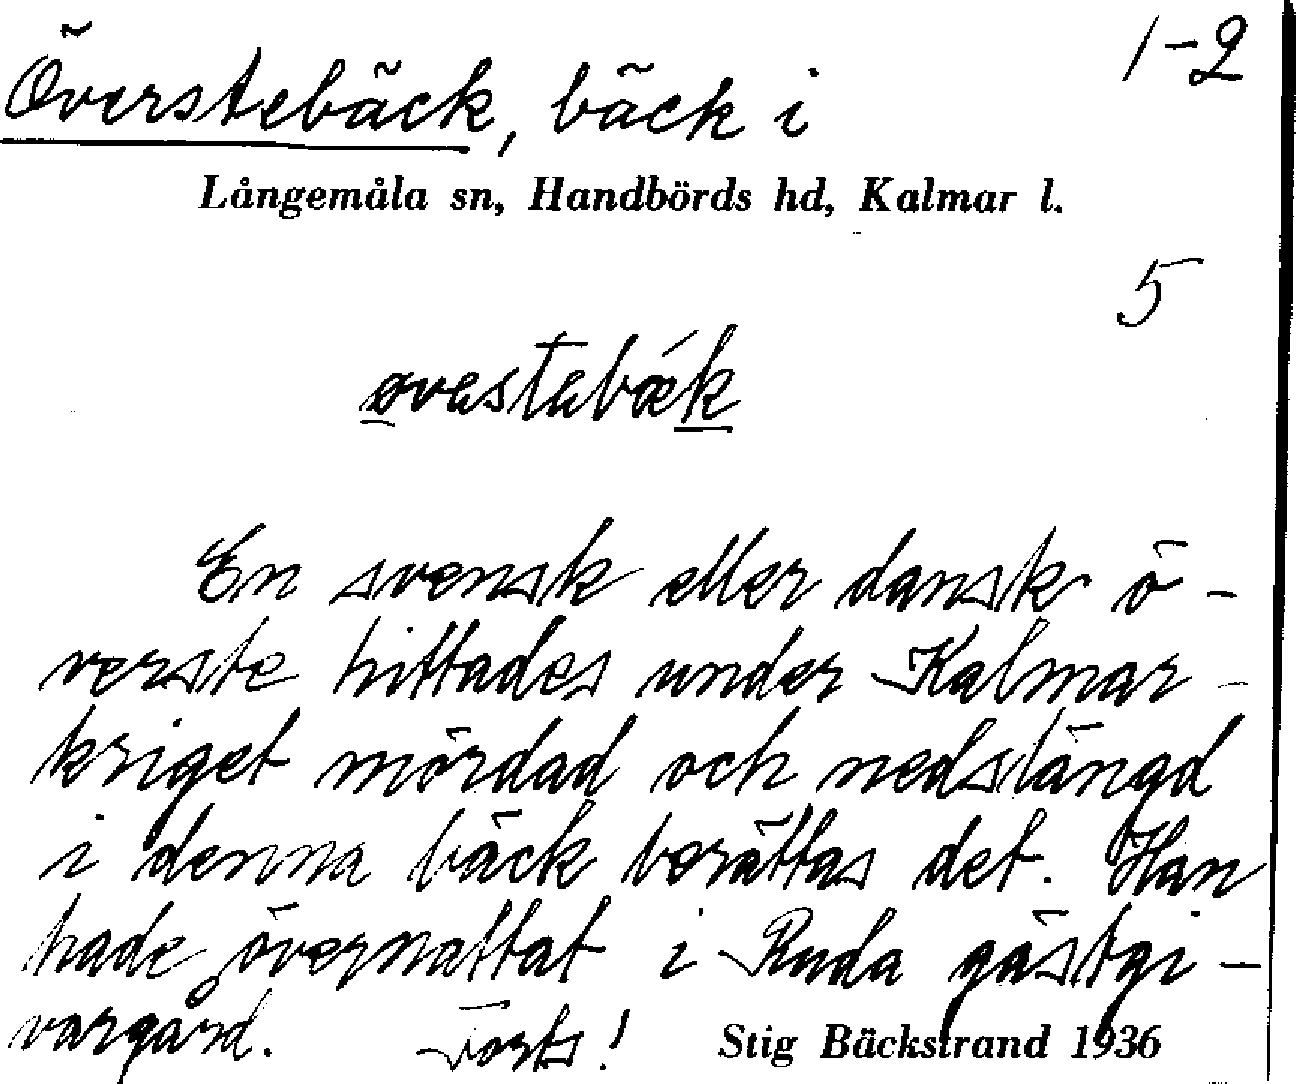 1-2
Överstebäck, bäck i
Långemåla sn, Handbörds hd, Kalmar l.
5
øvestebæk
En svensk eller dansk ö-
verste hittades under Kalmar-
kriget mördad och nedslängd
i denna bäck berättas det. Han
hade övernattat i Ruda gästgi-
vargård. Forts! Stig Bäckstrand 1936